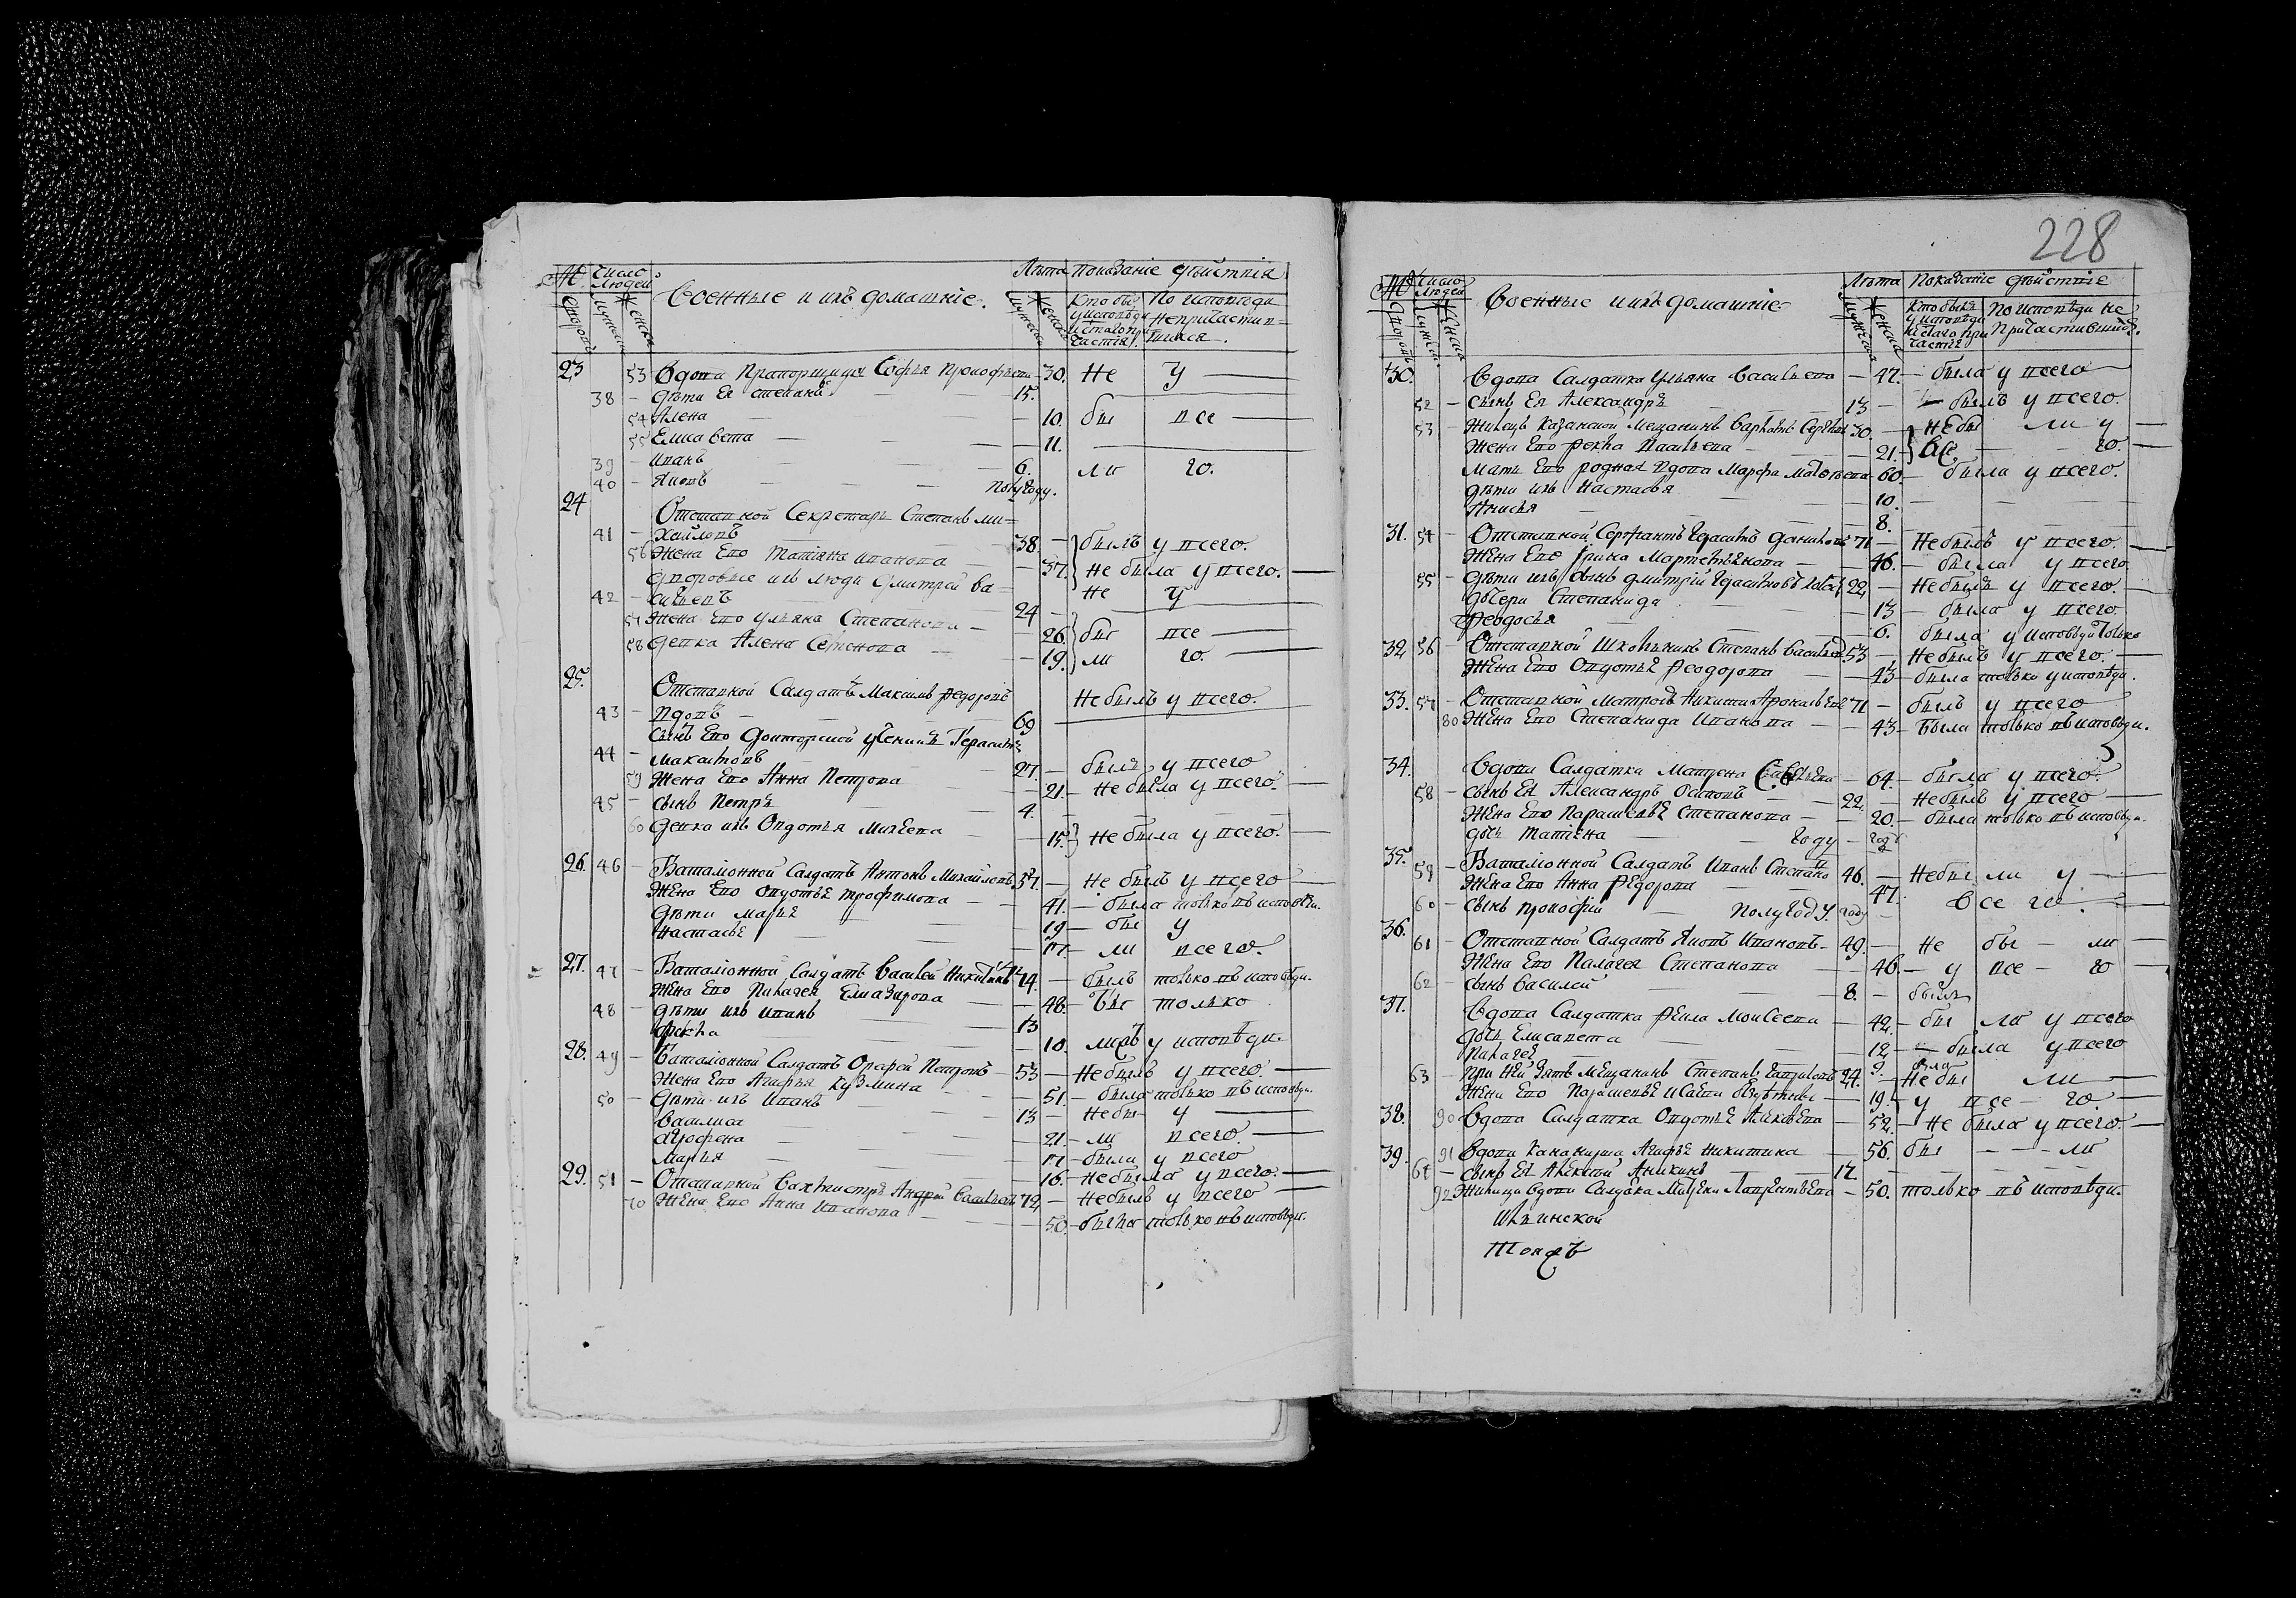 228
№ Число Людей Лѣта Показаніе дѣйствія
Дворовъ Мужеска Женска Военные и ихъ домашніе. Мужеска Женска Кто был у исповѣди и с таго причастія. По исповѣди непричастившися.
23 53 Вдова Прапорщица Софья Прокофьева 30. Не у
38 Дѣти Ея Степанъ 15.
54 Алена 10. бы все
55 Елисавета 11.
39 Иванъ 6. ли го.
40 Яковъ полугоду.
24 Отставной Секретарь Степанъ Ми=
41 хайловъ 38. былъ у всего.
56 Жена Его Татіяна Иванова 37. Не была у всего.
Дворовые ихъ люди Дмитрей Ва=
42 сильевъ 24 Не у
57 Жена Его Ульяна Степанова 26. бы все
58 Девка Алена Семенова 19. ли го.
25. Отставной Салдатъ Максимъ Федоровъ Не былъ у всего.
43 вдовъ 69
Сынъ Его Докторской ученикъ Герасимъ
44 Максимовъ 27. былъ у всего
59 Жена Его Анна Петрова 21. Не была у всего.
45 Сынъ Петръ 4.
60 Девка ихъ Овдотья Михеева 15. Не была у всего.
26. 46 Баталіонной Салдатъ Антонъ Михайловъ 57. Не былъ у всего
Жена Его Овдотье Трофимова 41. была толко въ исповѣди.
Дѣти Марье 19 бы у
Настасье 17. ли всего.
27. 47 Баталіонной Салдатъ Василей Никитинъ 74. былъ толко въ исповѣди.
Жена Его Пилагея Елиазарова 48. бы только
48 Дѣти ихъ Иванъ 13
Фекла 10. ли въ у исповѣди.
28. 49 Баталіонной Салдатъ Петровъ 53 Не былъ у всего.
Жена Его Агафья Кузмина 51. была толко въ исповѣди.
50 Дѣти ихъ Иванъ 13 Не бы у
Василиса 21 ли всего.
Аграфена 17 была у всего
Марья 16. Не была у всего.
29. 51 Отставной Вахмистръ Андрей Васильевъ 72, Не былъ у всего
70 Жена Его Анна Иванова 50. была толко въ исповѣди.
№ Число Людей Лѣта Показаніе дѣйствіе
Дворовъ Мужеска Женска Военные и ихъ домашніе Мужеска Женска Кто былъ у исповѣди и с таго причастія По исповѣди не причастившийся.
30. Вдова Салдатка Ульяна Васильева 47. была у всего
52 Сынъ Ея Александръ 13 былъ у всего.
53 Жилецъ Казанской Мещанинъ 30. Не бы ли у
Жена Его Фекла Васильева 21. все го.
Мать Его родная вдова Марфа Матвеева 60. была у всего.
Дѣти ихъ Настасья 10.
Анисья 8.
31. 54 Отставной Сержантъ Герасимъ Даниловъ 71 Не былъ у всего.
Жена Его Ірина Мартемьянова 46. была у всего
55 Дѣти ихъ сынъ Дмитрій Герасимовъ 22, Не былъ у всего.
Дочери Степанида 13 была у всего.
Феодосья 6. была у исповѣди только
32 56 Отставной Школьникъ Степанъ Васильевъ 53 Не былъ у всего.
Жена Его Овдотье Феодорова 43 была только у исповѣди.
33. 57 Отставной Матросъ Никита 71 былъ у всего
80 Жена Его Степанида Иванова 43 Была толко въ исповѣди.
34. Вдова Салдатка Матрена 64. была у всего.
58 Сынъ Ея Александръ Осиповъ 22, Не былъ у всего
Жена Его Парасковье Степанова 20. была толко въ исповѣди.
Дочь Татіана году году
35. 59 Баталіонной Салдатъ Иванъ Степановъ 46. Не бы ли у
Жена Его Анна Федорова 47. все го.
60 Сынъ Прокофій полугоду. году
36. 61 Отставной Салдатъ Яковъ Ивановъ 49. Не бы ли
Жена Его Палагея Степанова 46. у все го
62 Сынъ Василей 8. былъ
37. Вдова Салдатка Моисеева 42. бы ли у всего
Дочь Елисавета 12 была у всего
Пилагея 9. была
63 При ней зять Мещанинъ Степанъ Гавриловъ 24. Не бы ли
Жена Его Парасковье 19. у все го.
38. 90 Вдова Салдатка Овдотье Яковлева 52. Не была у всего.
39. 91 Вдова Агафье Никитина 56. бы ли
64 Сынъ Ея Алексей Аникинъ 17.
92 Жилица Вдова Салдатка 50. только въ исповѣди.